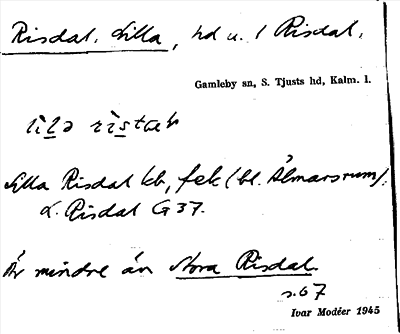 Risdal, Lilla, hd u. l Risdal.
Gamleby sn, S. Tjusts hd, Kalm. l.
Lilla Risdal kb, fek (bl. Älmarsrum):
L. Risdal G 37.
Är mindre än Stora Risdal.
s. 67
Ivar Modéer 1945